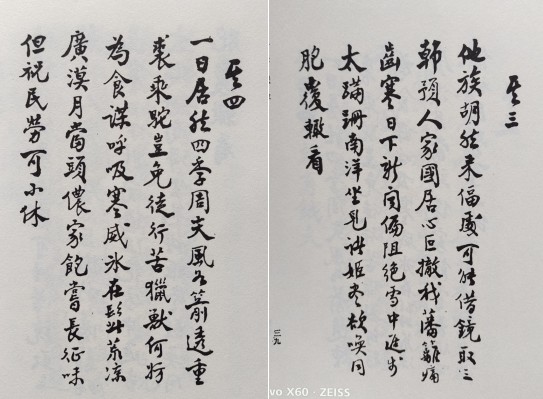 其三
他族胡然来偪處可能借鏡取三
韓預人家國居心叵撤我藩籬痛
齒寒日下新聞偏阻絕雪中進步
太蹣跚南洋坐見諸姬盡欲喚同
胞覆轍看
三九
其四
一日居然四季周尖風如箭透重
裘乘駝豈免徒行苦獵獸何妨
為食謀呼吸寒威冰在髭荒涼
廣漠月當頭儂家飽嘗長征味
但祝民勞可小休
vo X60 · ZEISS